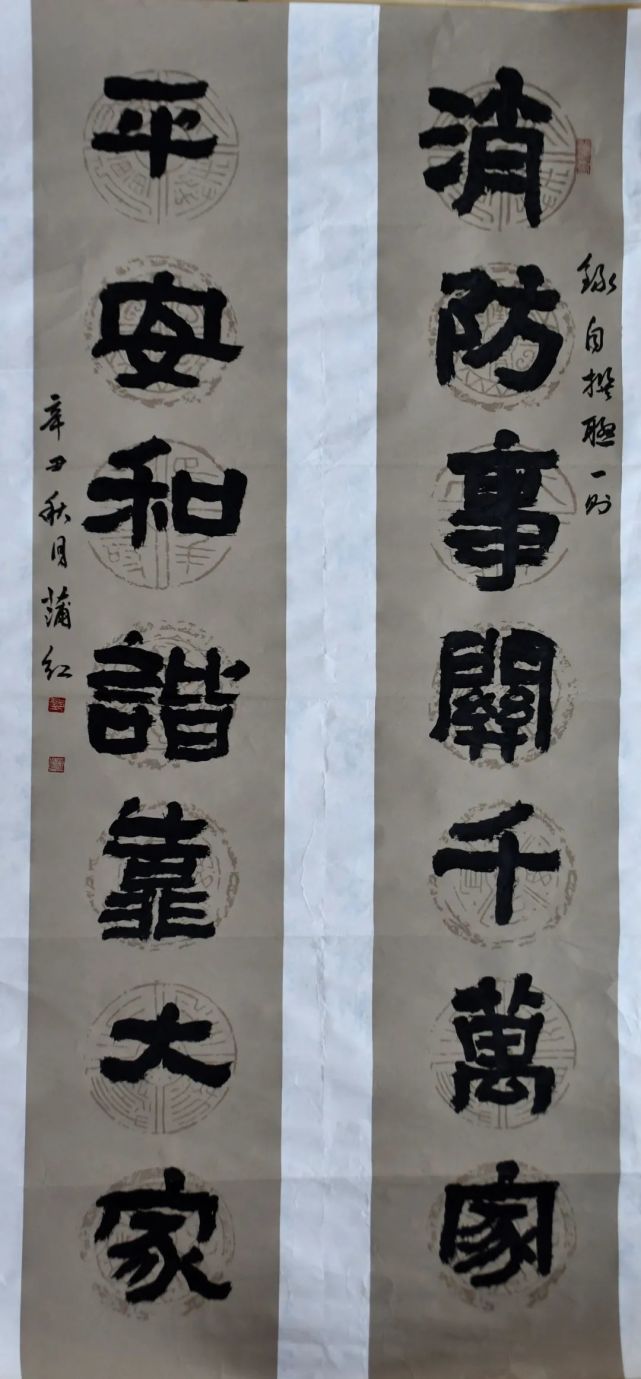 消防事關千萬家
録自撰聯一則
平安和諧靠大家
辛丑秋月蒲紅